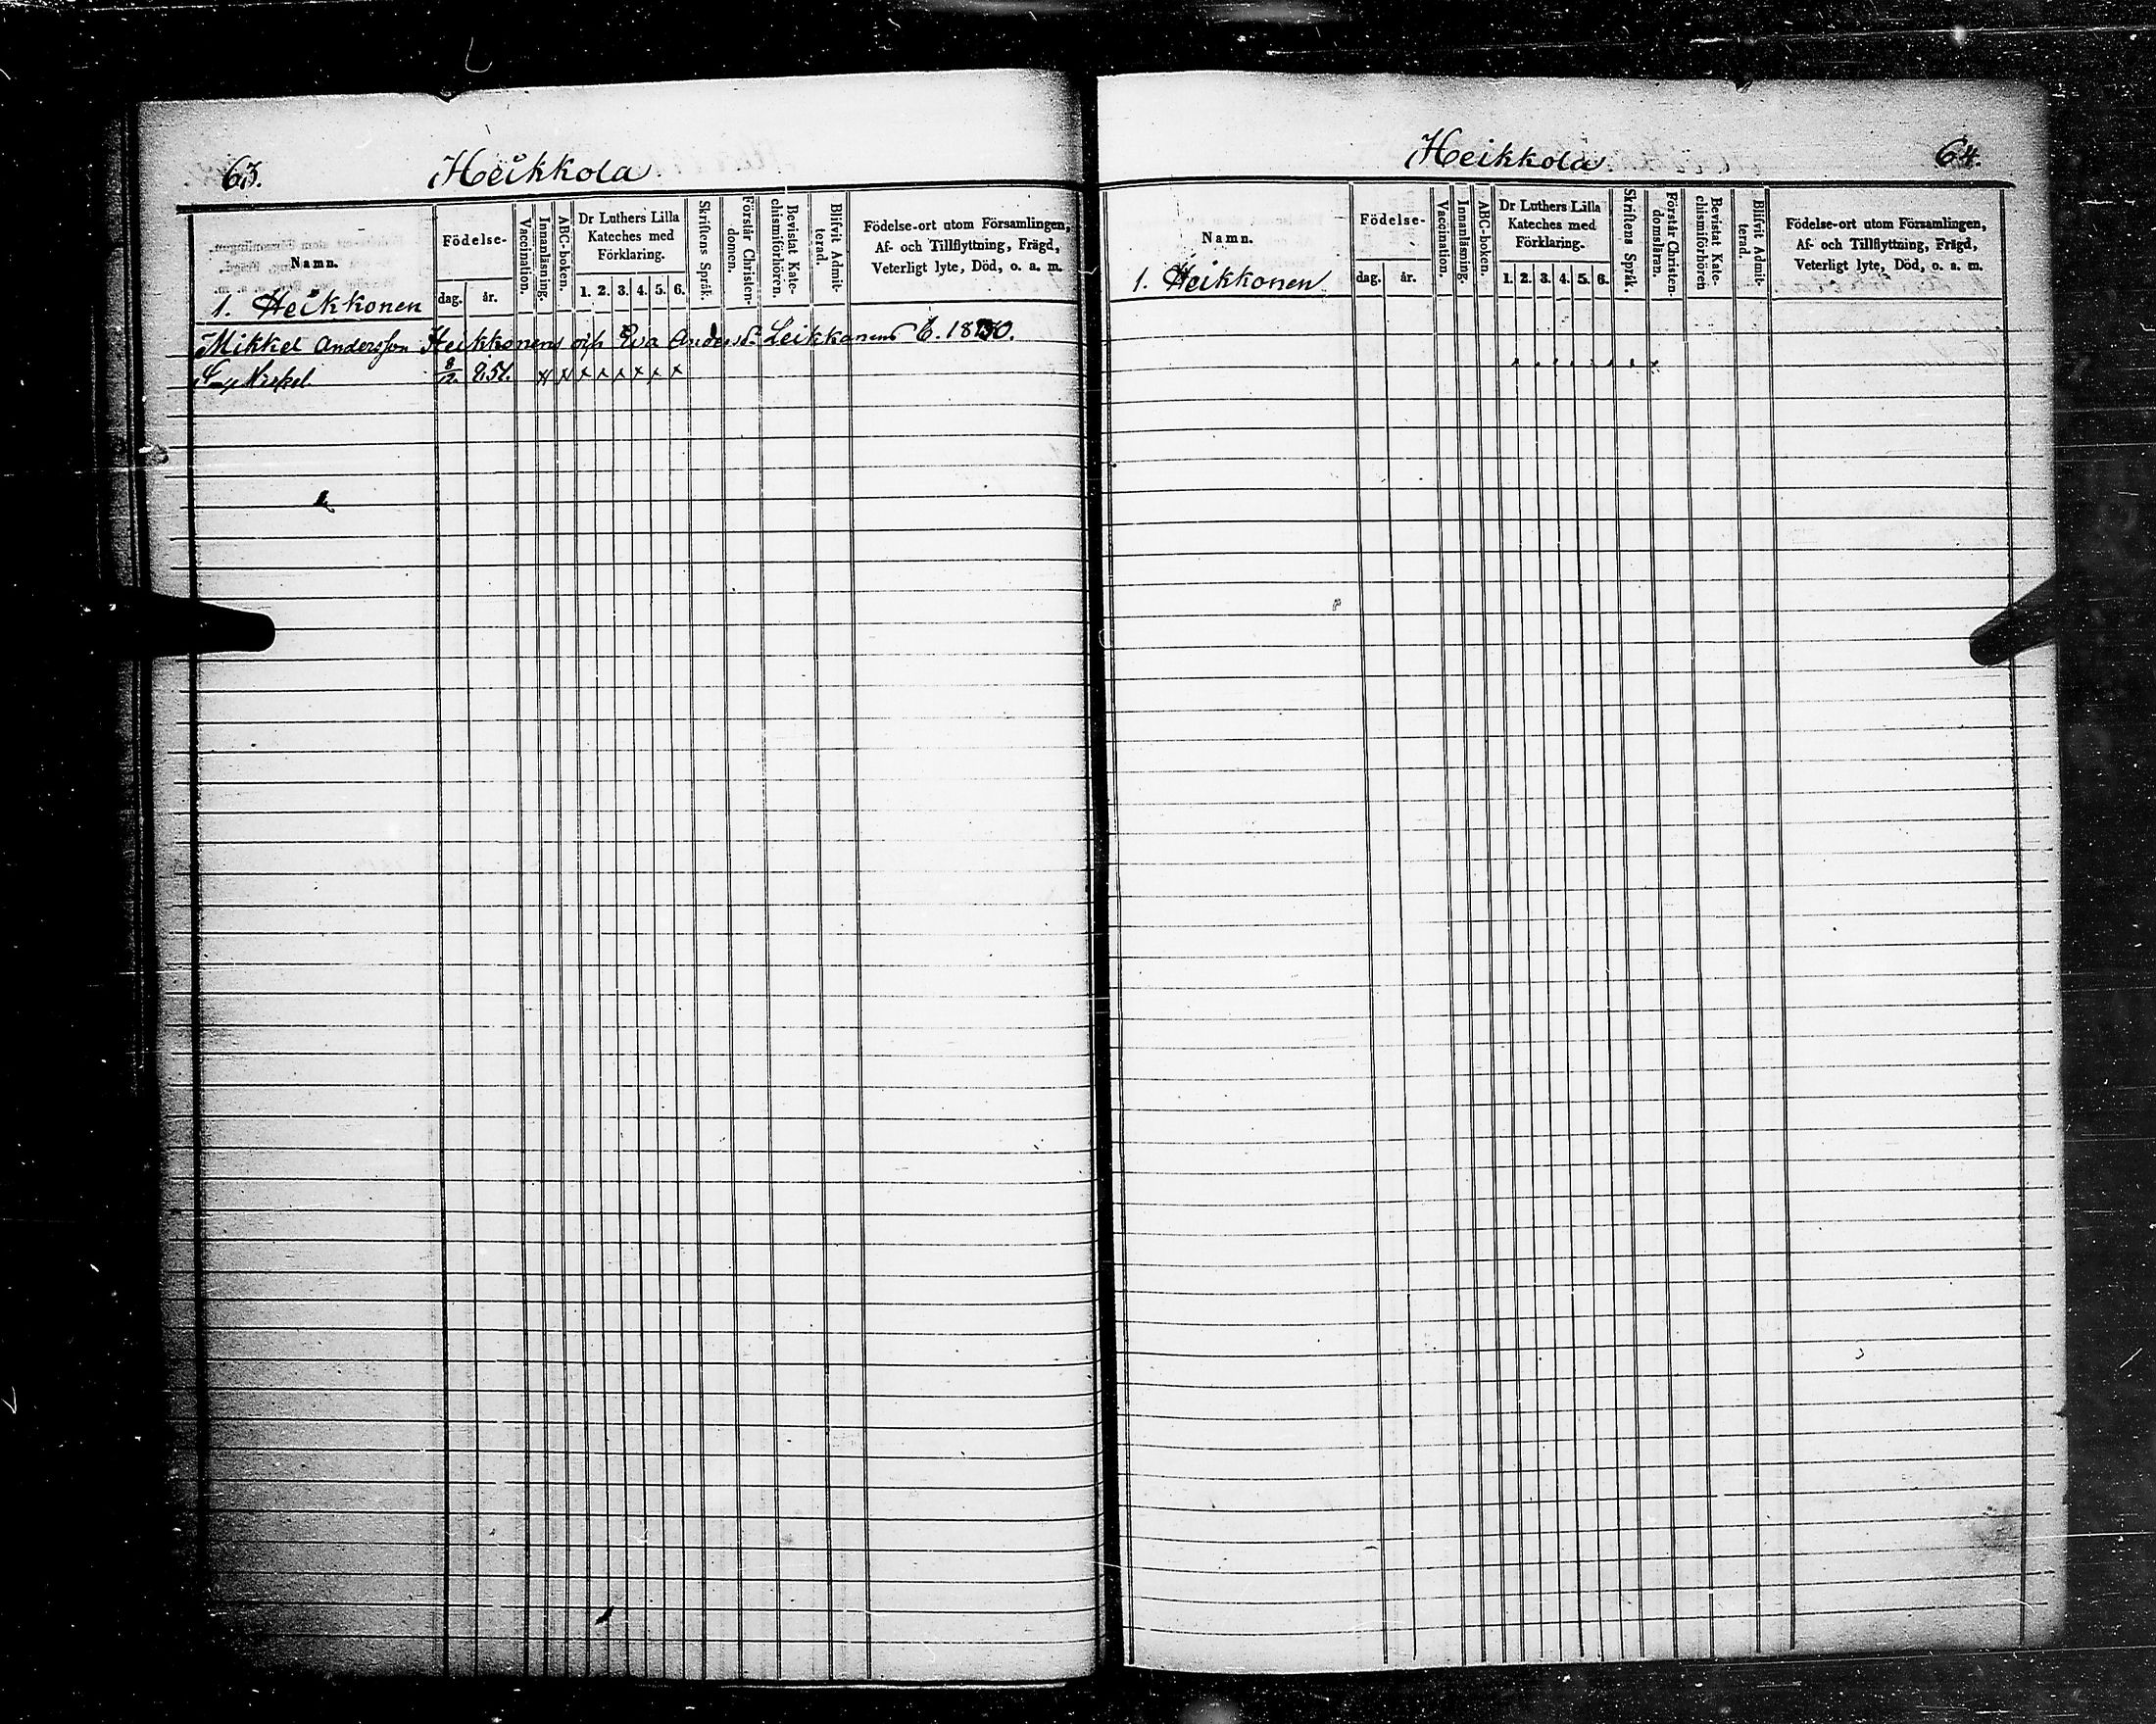 63. Heikkola
Namn.
Födelse-
dag. år.
Vaccination.
Innanläsning.
ABC-boken.
Dr Luthers Lilla
Kateches med
Förklaring.
1. 2. 3. 4. 5. 6.
Skriftens Språk.
Förstår Christen-
domen.
Bevistat Kate-
chismiförhören.
Blifvit Admit-
terad.
Födelse-ort utom Församlingen,
Af- och Tillflyttning, Frägd,
Veterligt lyte, Död, o. a. m.
1. Heikkonen
Mikkel Andersson Heikkonens Eva Leikkanens
8/12. 851. x x x x x x x x
Heikkola 64.
Namn.
Födelse-
dag. år.
Vaccination.
Innanläsning.
ABC-boken.
Dr Luthers Lilla
Kateches med
Förklaring.
1. 2. 3. 4. 5. 6.
Skriftens Språk.
Förstår Christen-
domsläran.
Bevistat Kate-
chismiförhören
Blifvit Admit-
terad.
Födelse-ort utom Församlingen,
Af- och Tillflyttning, Frägd,
Veterligt lyte, Död, o. a. m.
1. Heikkonen